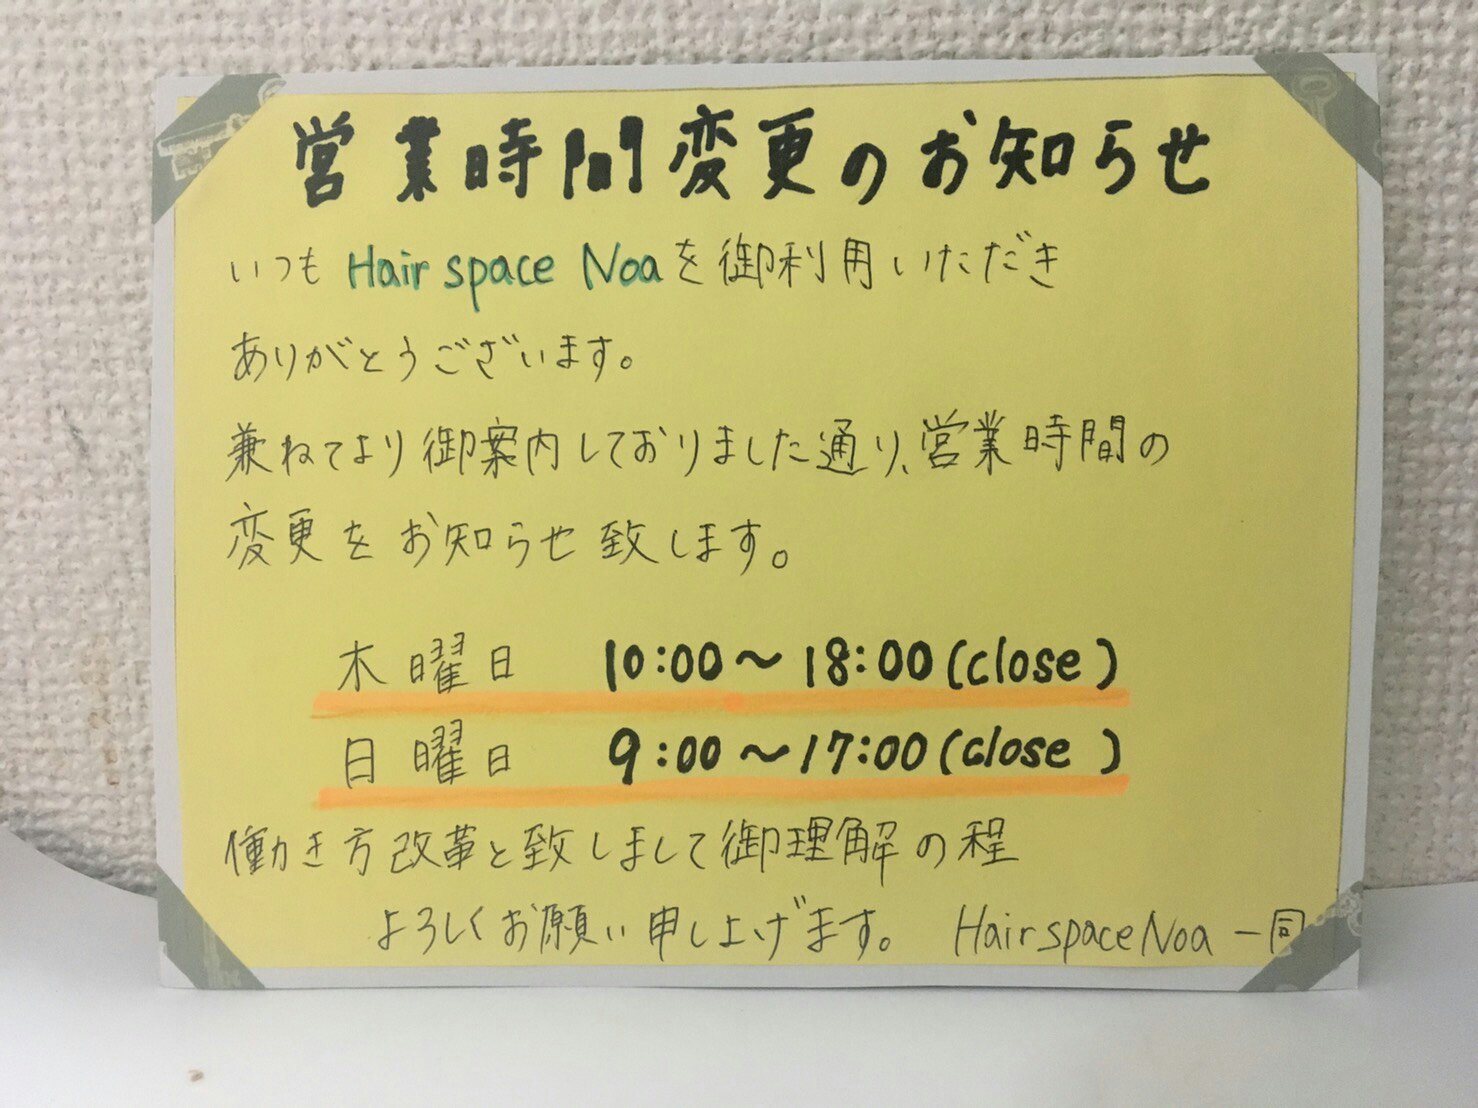 営業時間変更のお知らせ
いつも Hair space Noaを御利用いただき
ありがとうございます。
兼ねてより御案内しておりました通り、営業時間の
変更をお知らせ致します。
木曜日 10:00～18:00(close)
日曜日 9:00～17:00(close)
働き方改革と致しまして御理解の程
よろしくお願い申し上げます。 Hair space Noa 一同